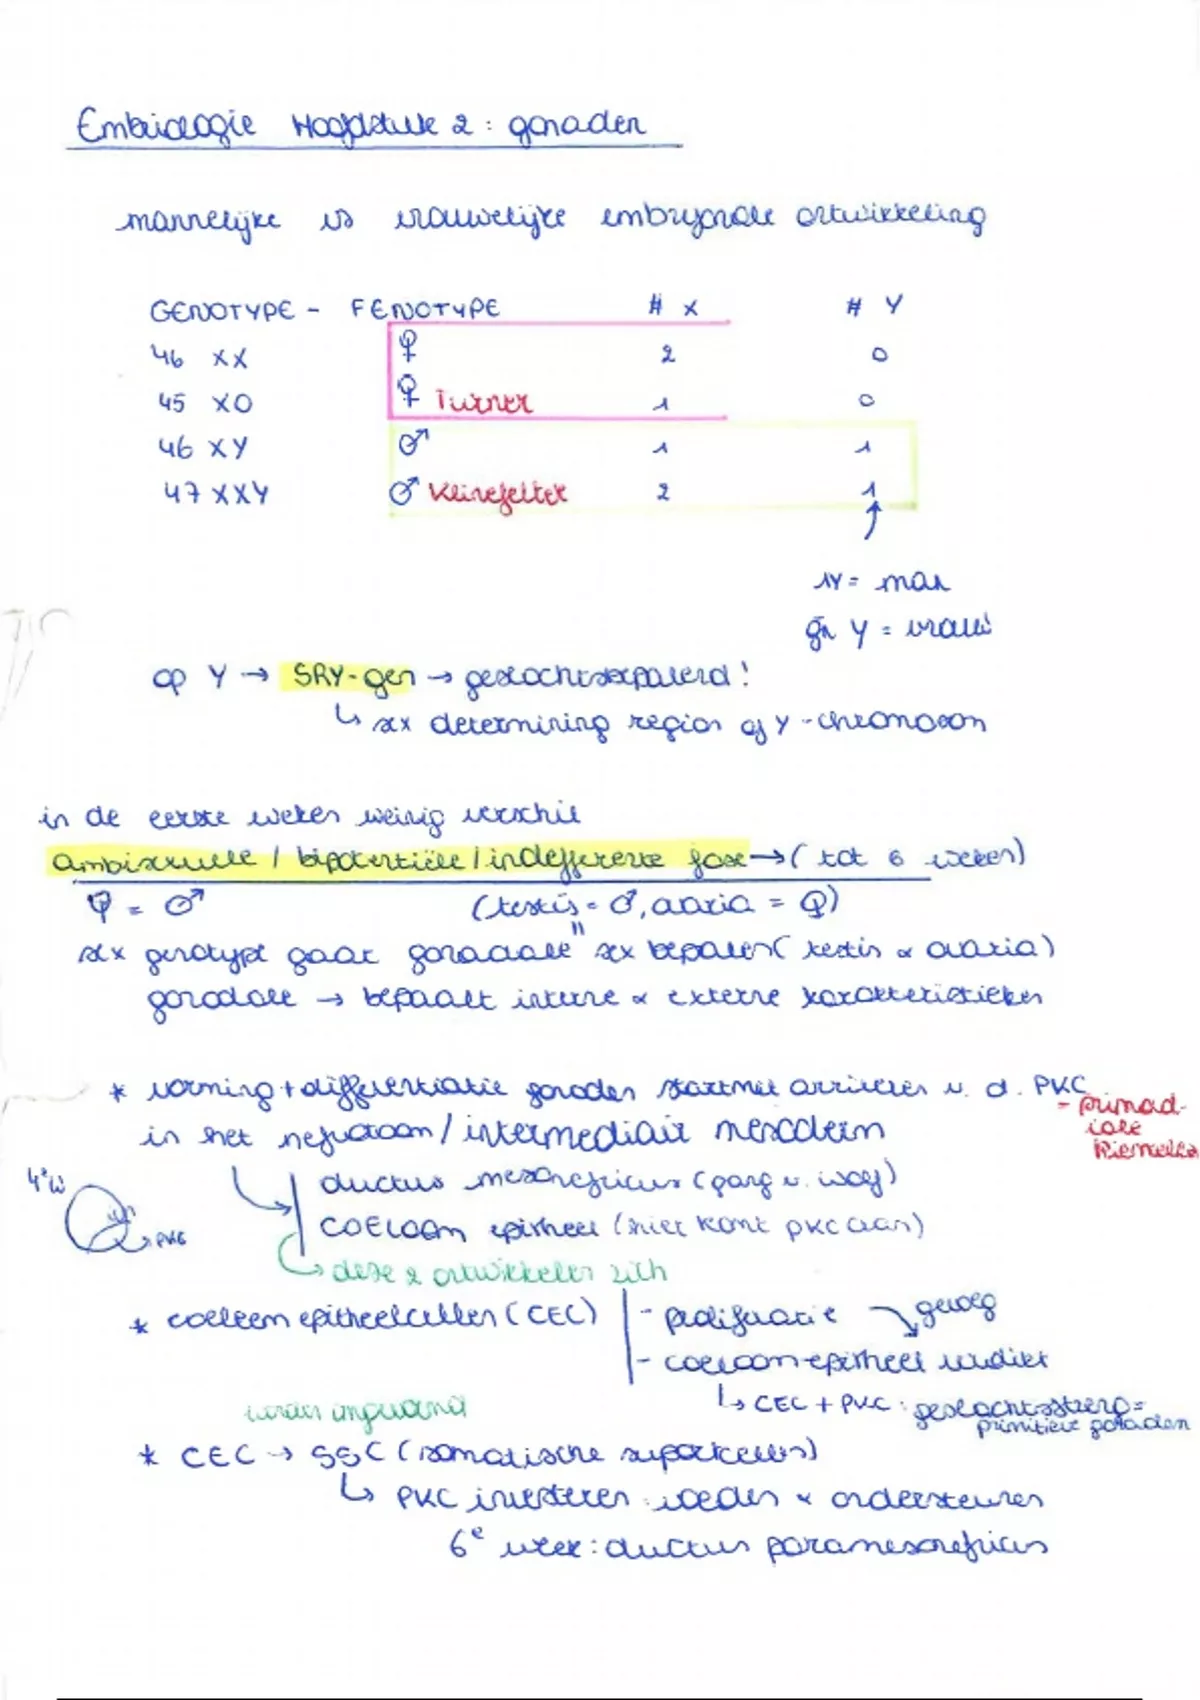 Embriologie Hoofdstuk 2: gonaden
mannelijke vs vrouwelijke embryonale ontwikkeling
GENOTYPE - FENOTYPE # X # Y
46 XX ♀ 2 0
45 XO ♀ Turner 1 0
46 XY ♂ 1 1
47 XXY ♂ Klinefelter 2 1
1Y = man
gn Y = vrouw
op Y → SRY-gen → geslachtsbepalend!
↳ sex determining region of Y-chromosoon
in de eerste weken weinig verschil
ambisexuele / bipotentiële / indifferente fase → ( tot 6 weken)
♀ = ♂ (testis = ♂, ovaria = ♀)
sex genotype gaat gonadale sex bepalen ( testis & ovaria)
gonadale → bepaalt interne & externe karakteristieken
* vorming + differentiatie gonaden start met arriveren v. d. PKC
- primordiale kiemcellen
in het nefrotoom / intermediair mesoderm
4e w
ductus mesonefricus (gang v. wolf)
PKC
COELOOM epitheel (hier komt PKC aan)
↳ deze 2 ontwikkelen zich
* coeloom epitheelcellen (CEC) - proliferatie gevolg
- coeloom-epitheel verdikt
↳ CEC + PKC: geslachtsstreng =
primitieve gonaden
* CEC → SSC (somatische supportcellen)
↳ PKC investeren: voeden & ondersteunen
6e week: ductus paramesonefricus